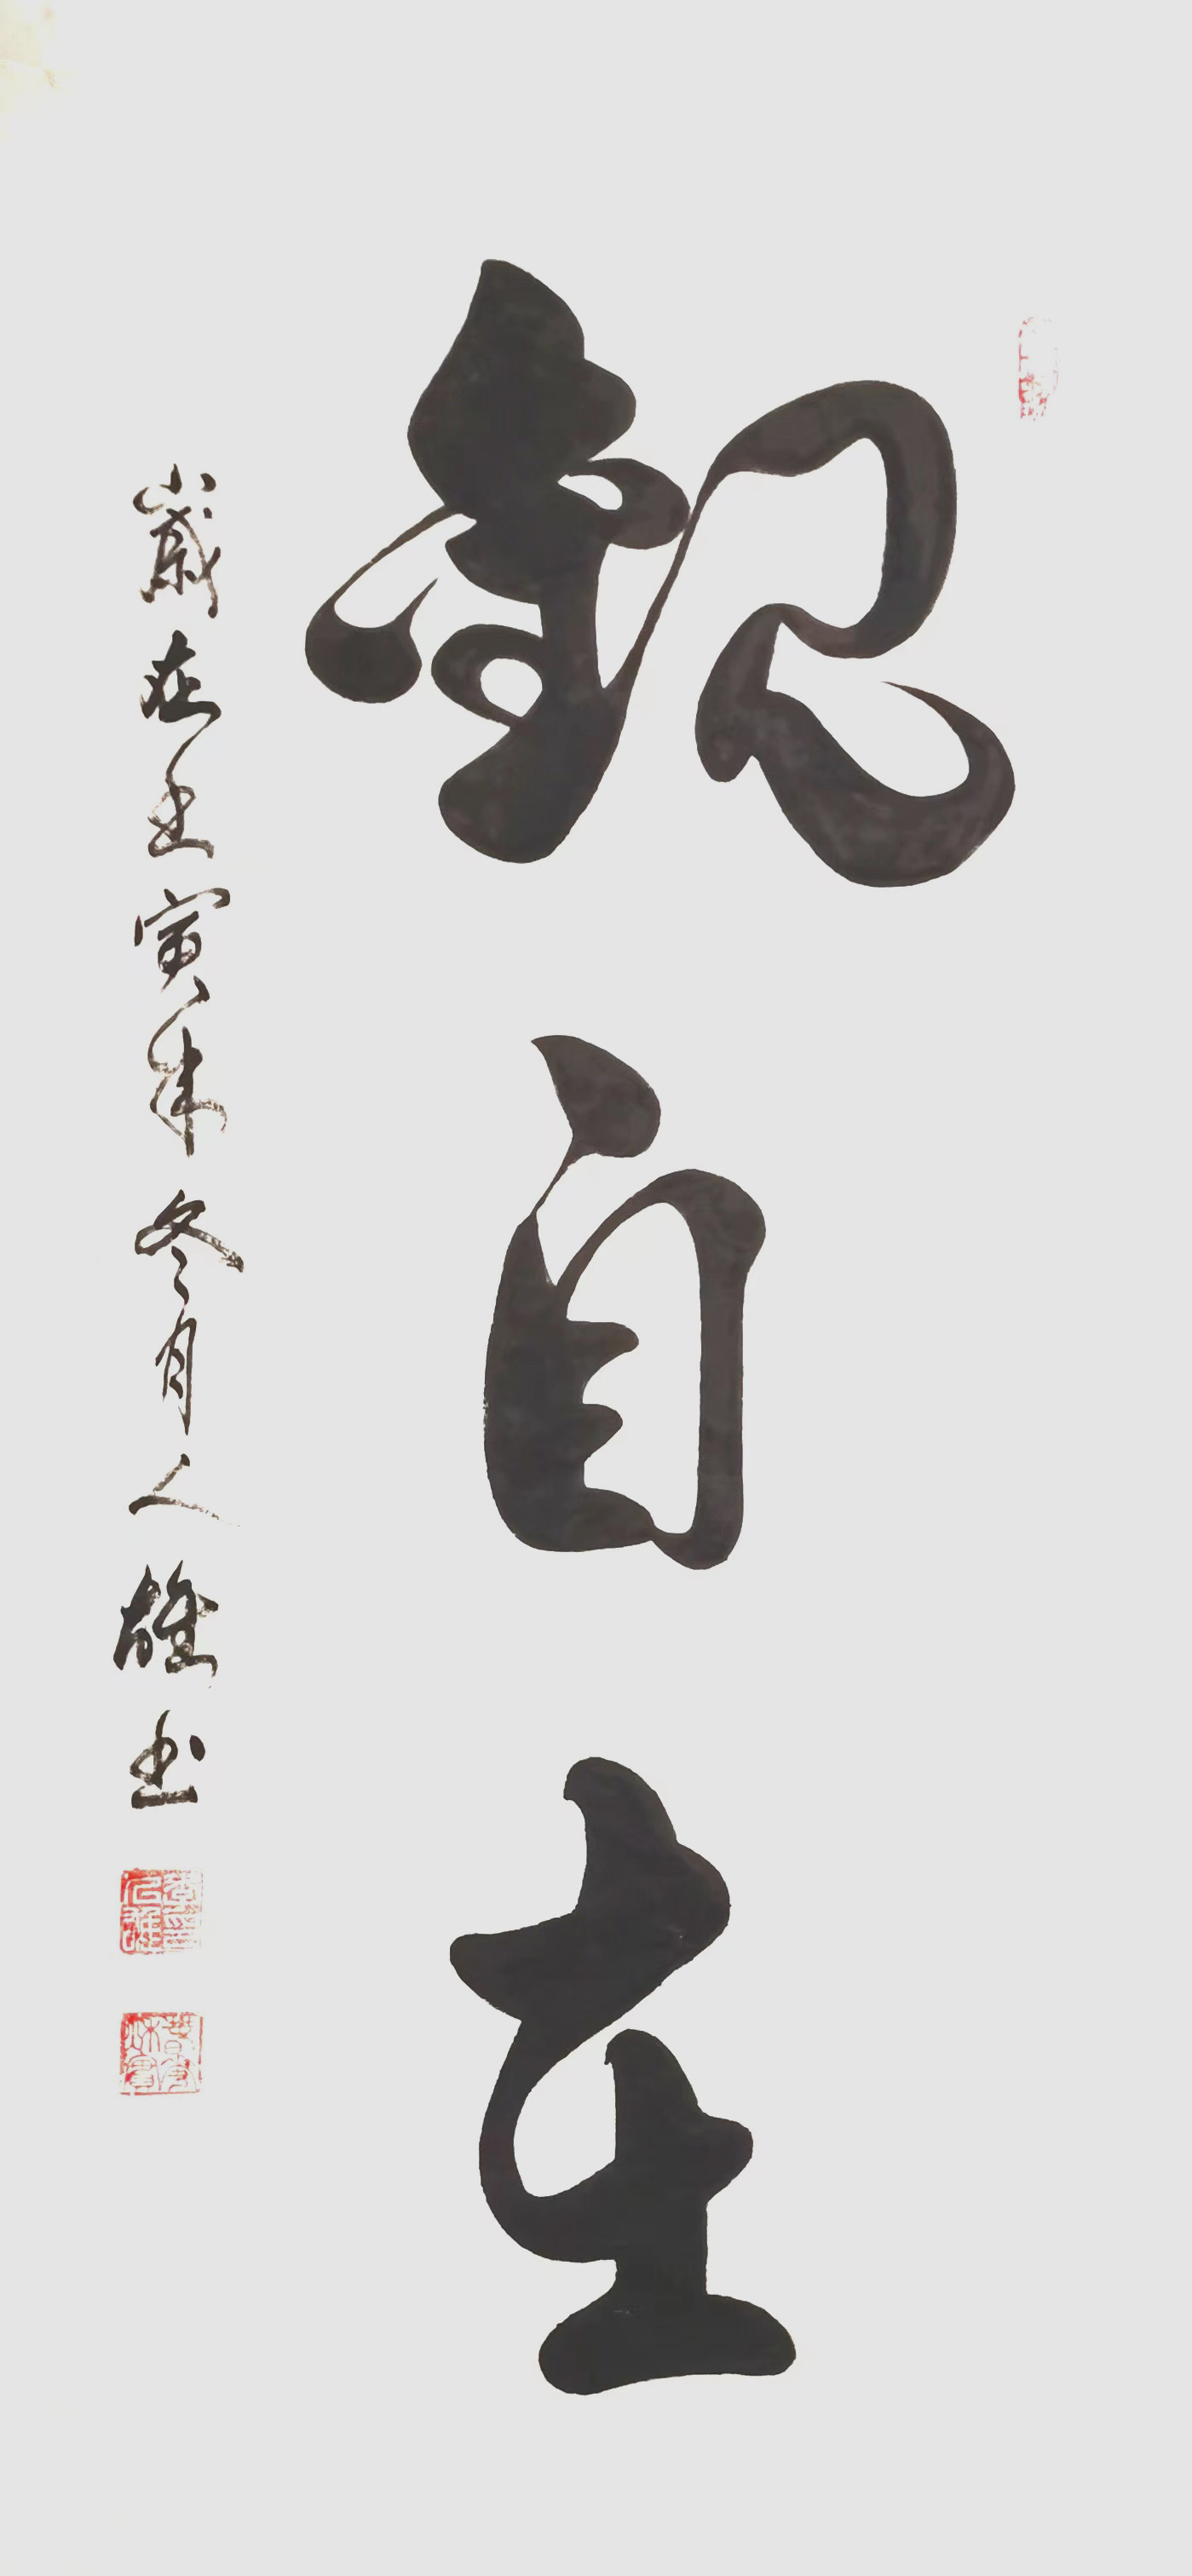 觀自在
歲在壬寅年冬月人雄书